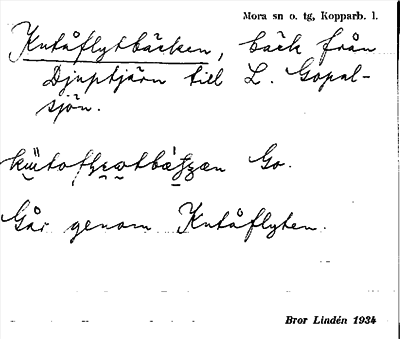 Mora sn o. tg, Kopparb. l.
Kntåflytbäcken, bäck från
Djuptjärn till L. Gopal-
sjön.
Go.
Går genom Kntåflyten.
Bror Lindén 1934